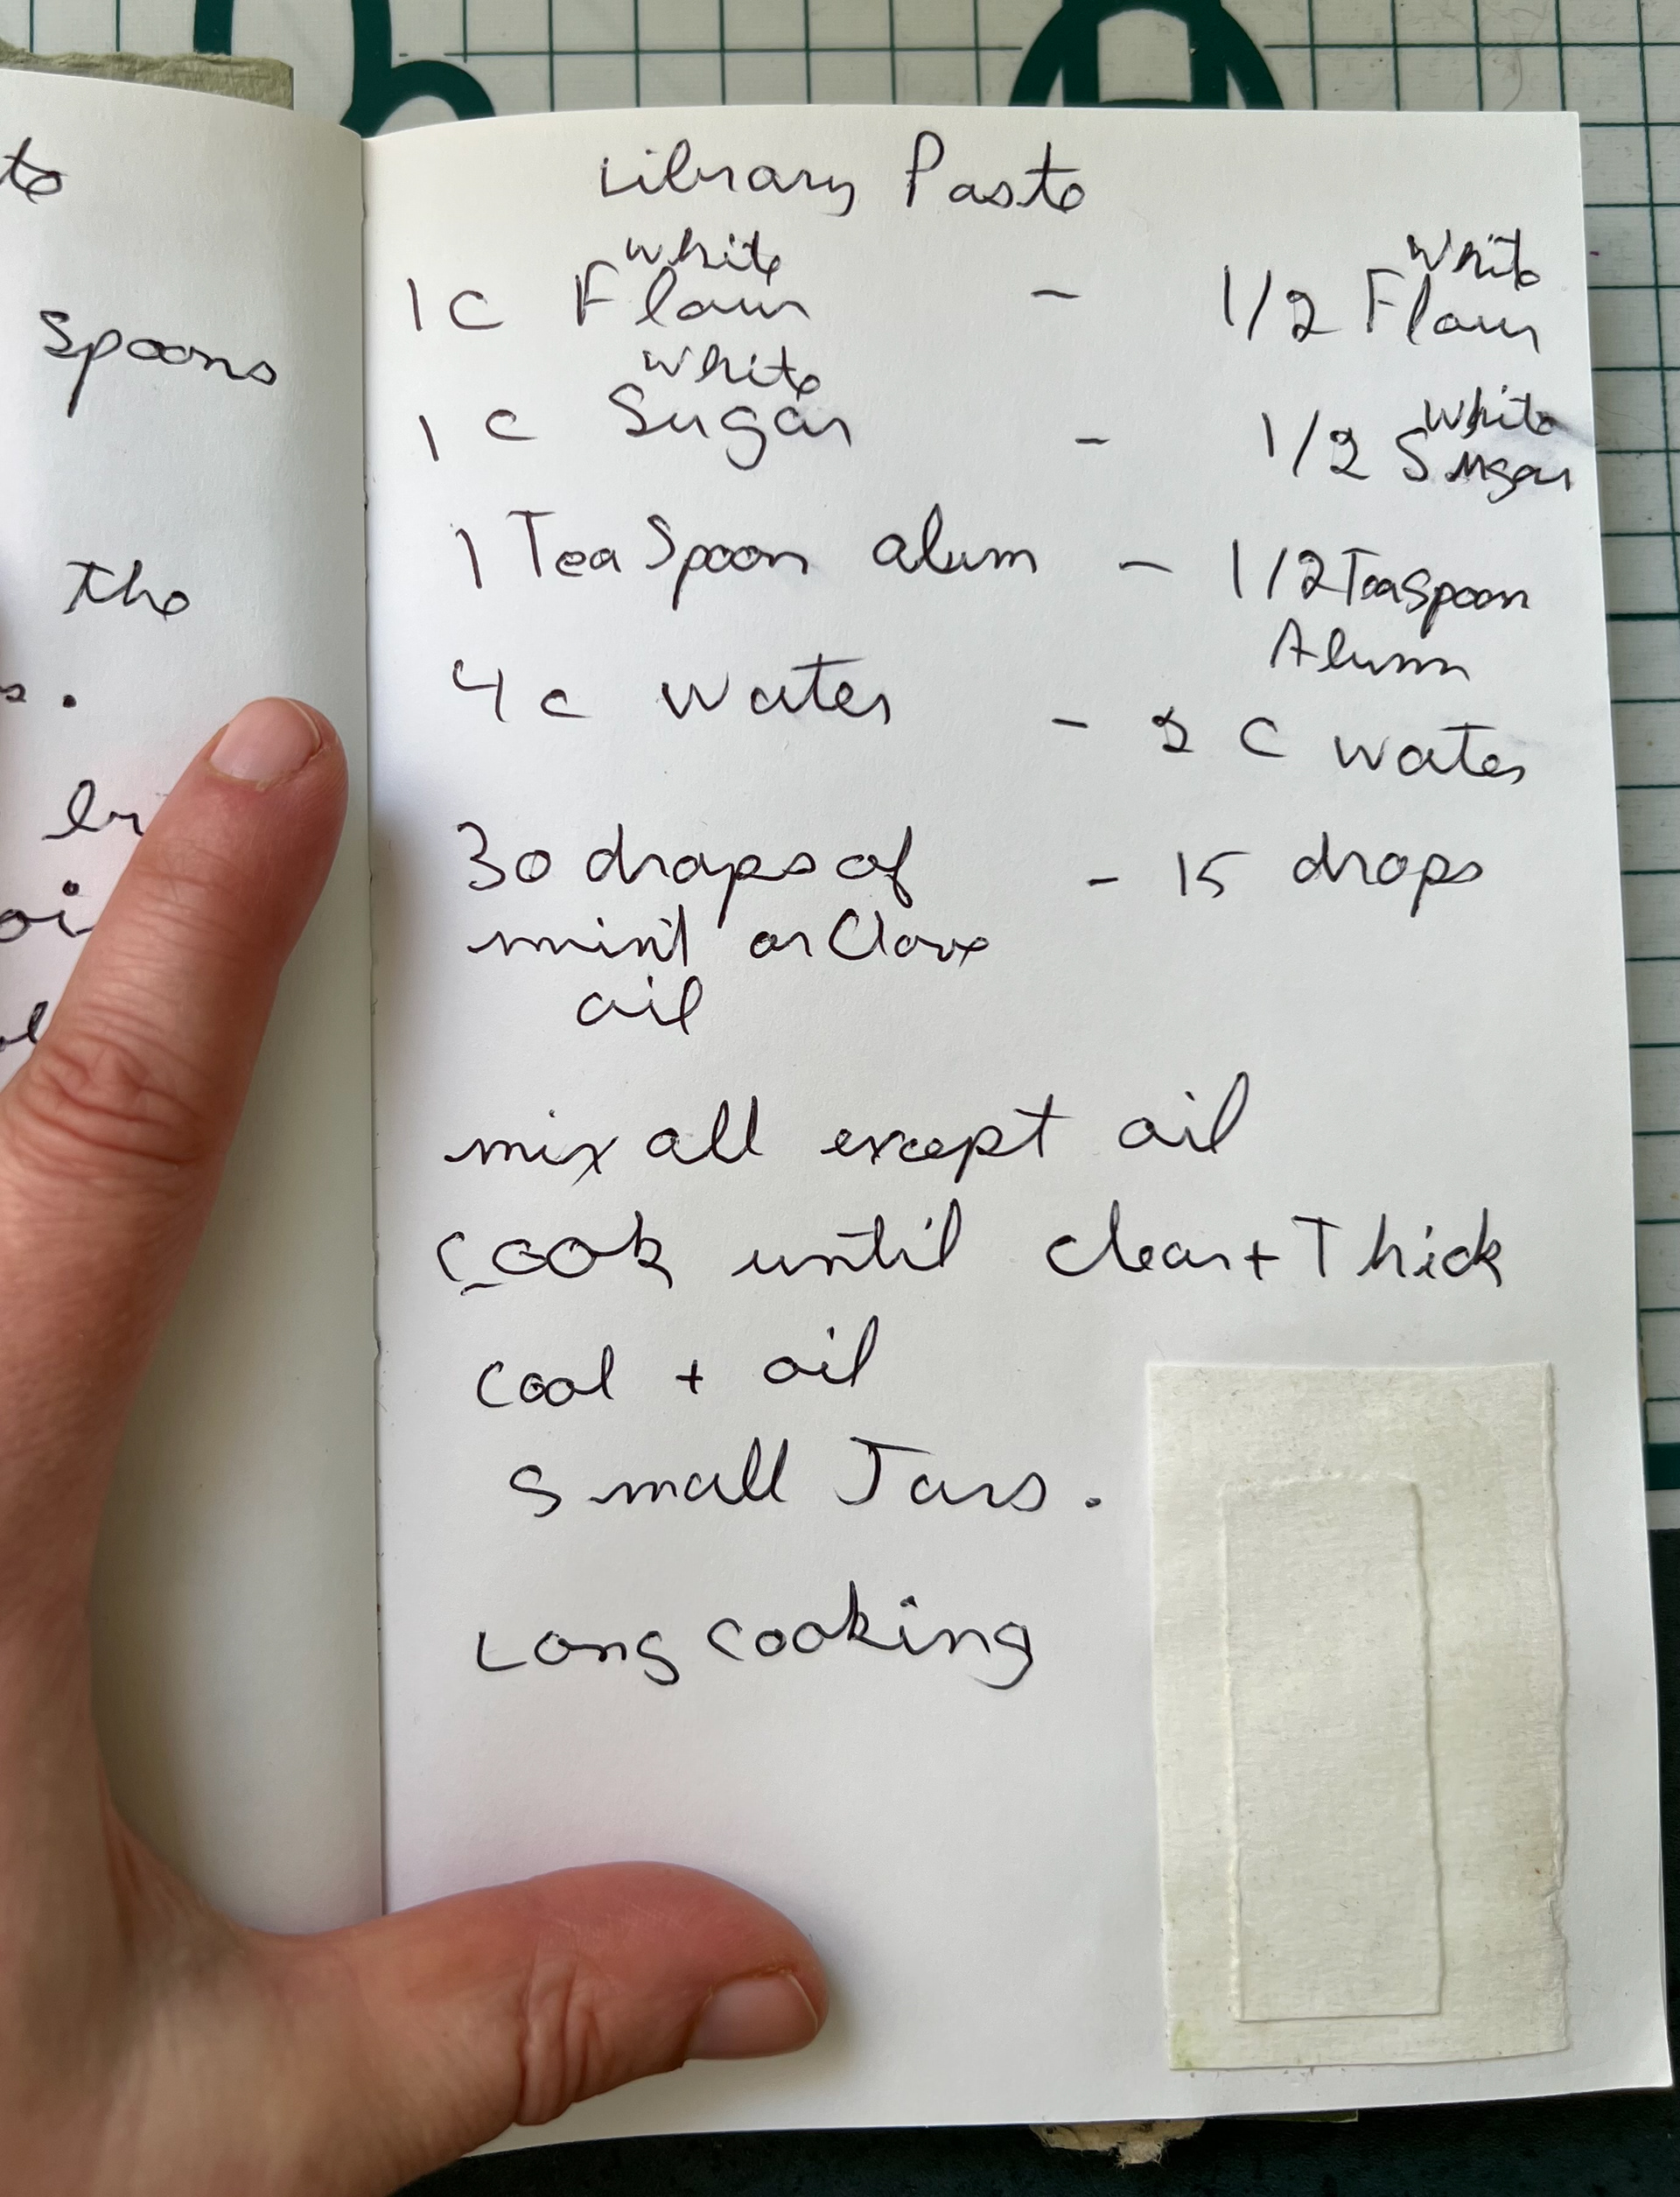 to
spoons
the
s.
Library Paste
1 c White Flour - 1/2 White Flour
1 c White Sugar - 1/2 White Sugar
1 TeaSpoon alum - 1/2 Teaspoon
Alum
4 c water - 2 C water
30 drops of - 15 drops
mint or Clove
oil
mix all except oil
cook until clear + Thick
cool + oil
Small Jars.
Long cooking